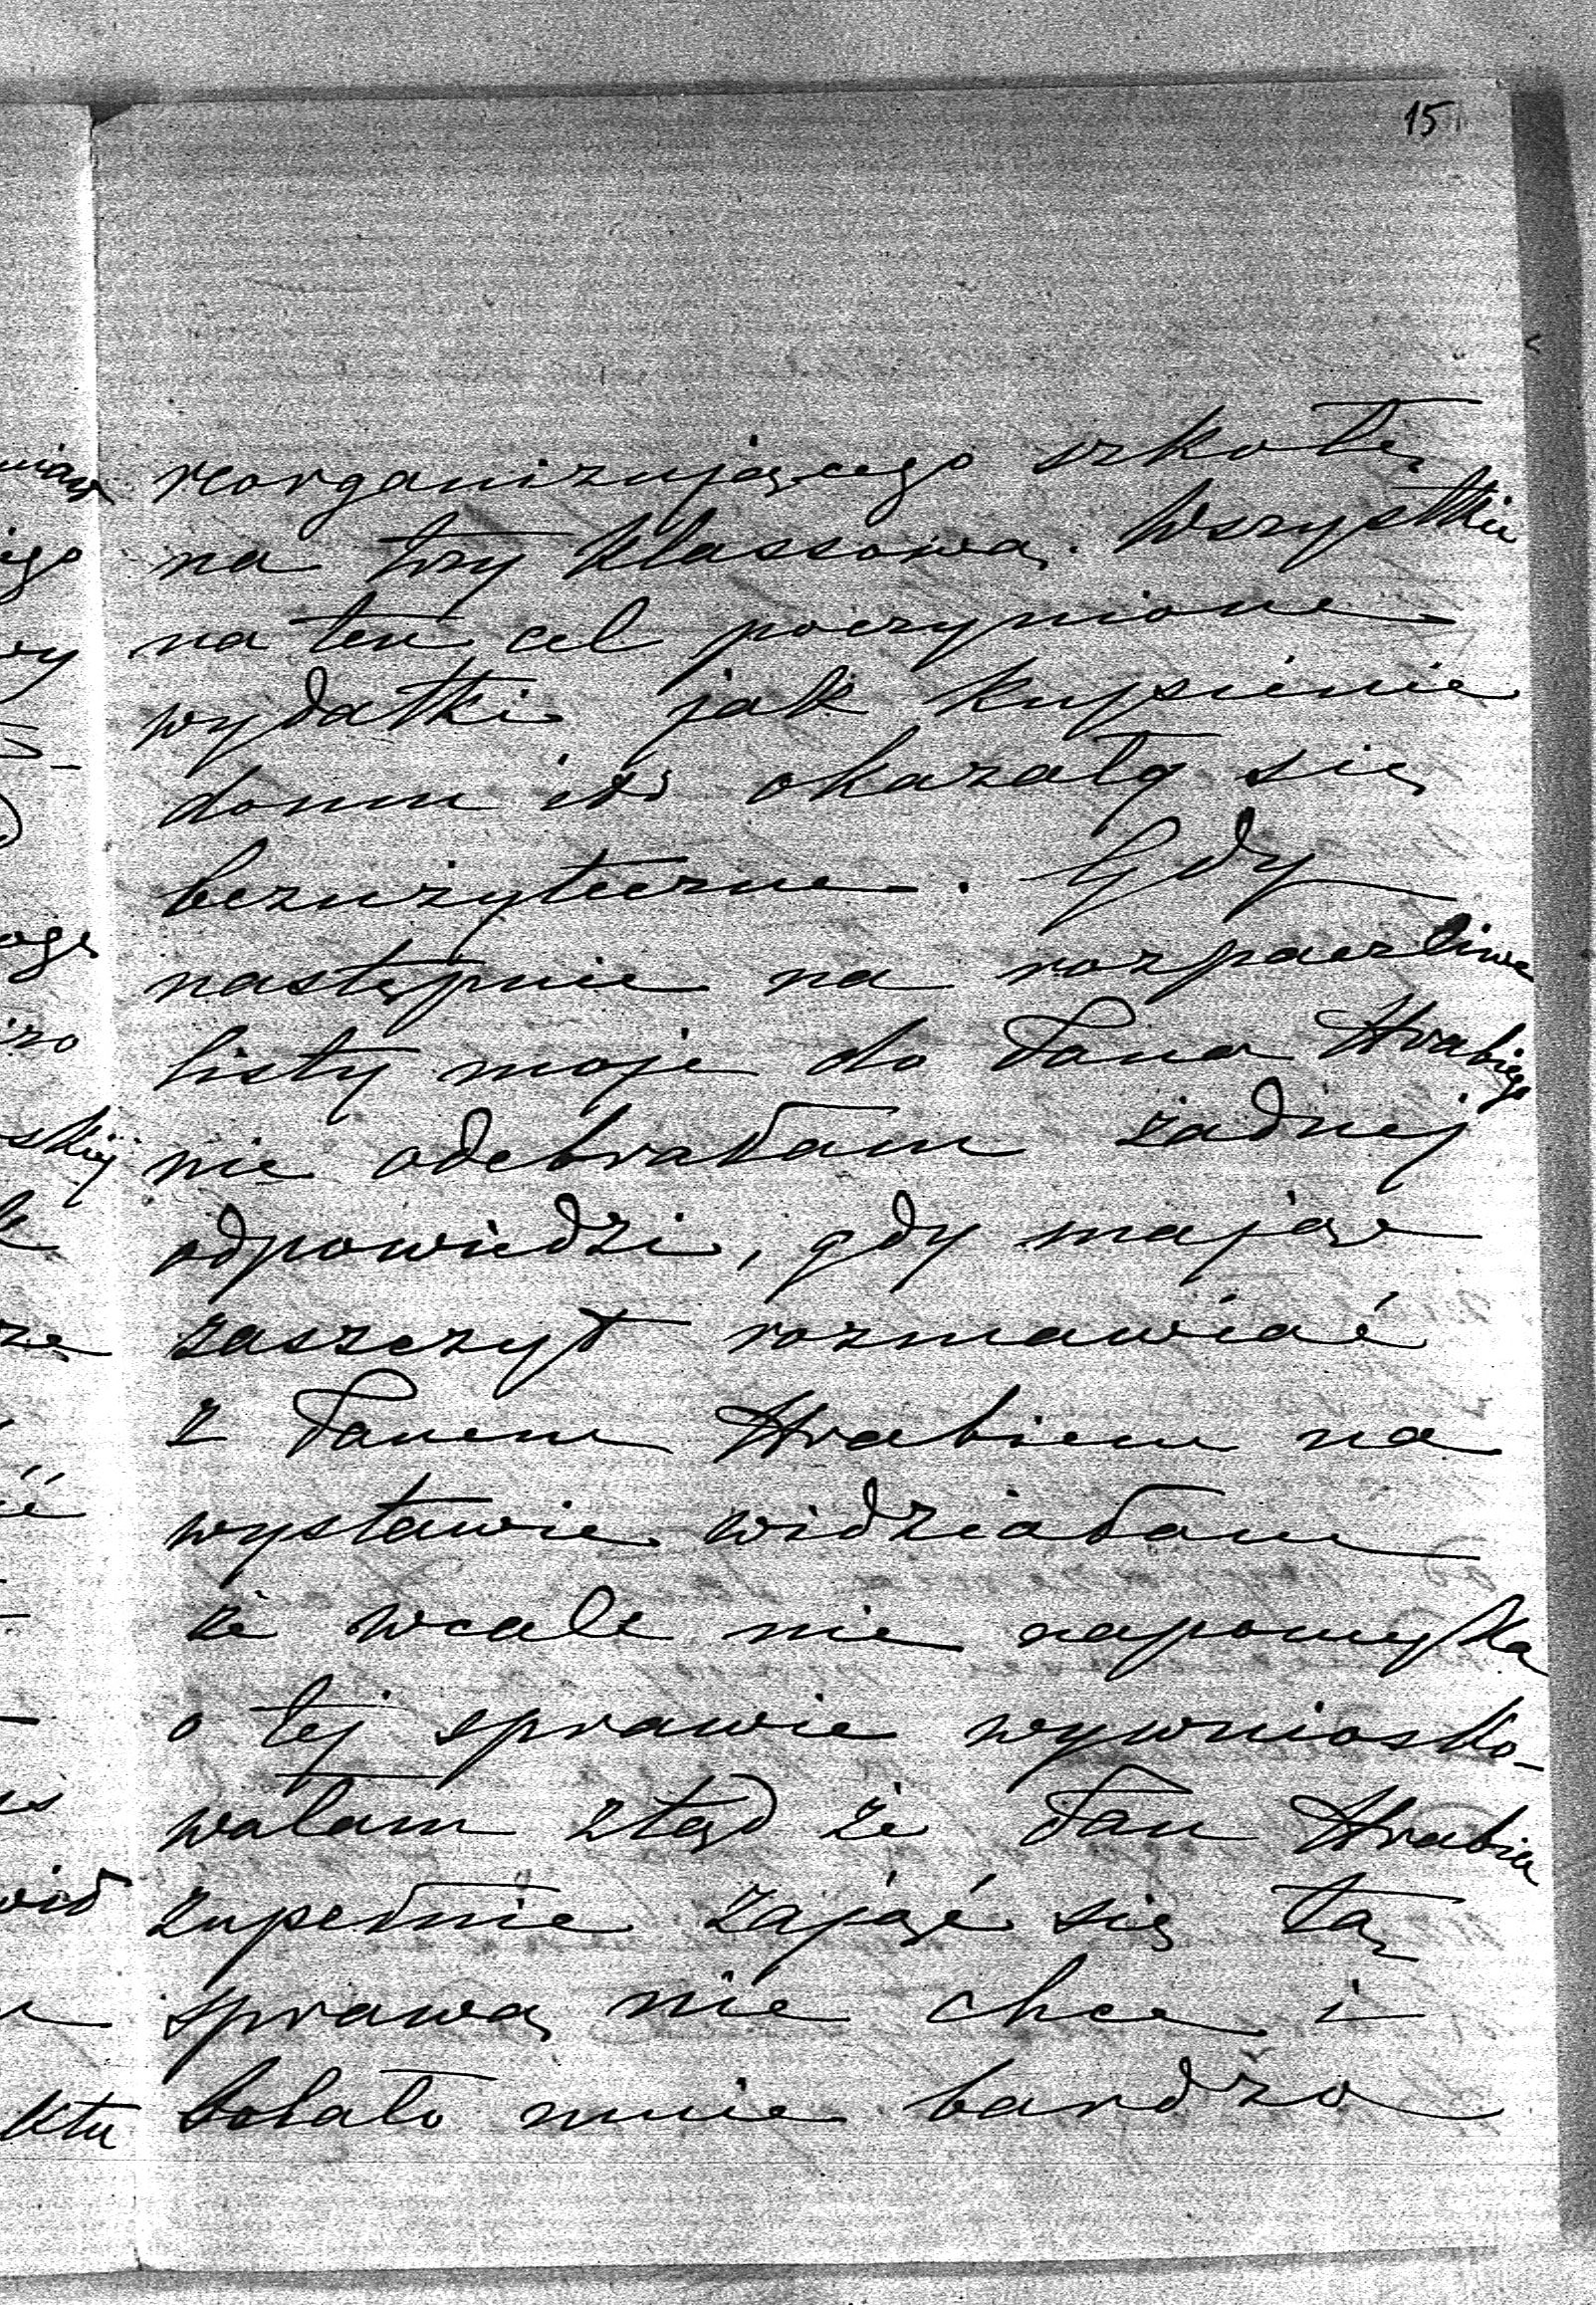 15
reorganizującego szkołę
na trzy klassową. Wszystkie
na ten cel poczynione
wydatki jak kupienie
domu itd okazały się
bezużyteczne. Gdy
następnie na rozpaczliwe
listy moje do Pana Hrabiego
nie odebrałam żadnej
odpowiedzi, gdy mając
zaszczyt rozmawiać
z Panem Hrabiem na
wystawie widziałam
że wcale nie napomyka
o tej sprawie wywniosko-
wałam ztąd że Pan Hrabia
zupełnie zająć się tą
sprawą nie chce i
bolało mnie bardzo